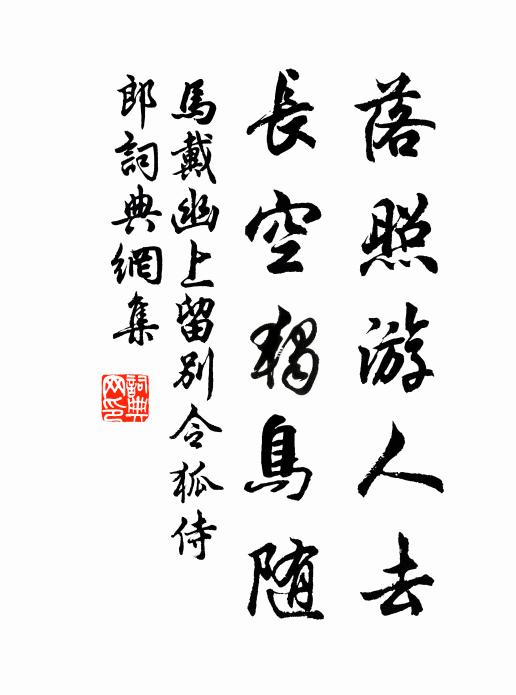 落照游人去
長空獨鳥随
馬戴幽上留別令狐侍
郎詞典網集
詞典
网印